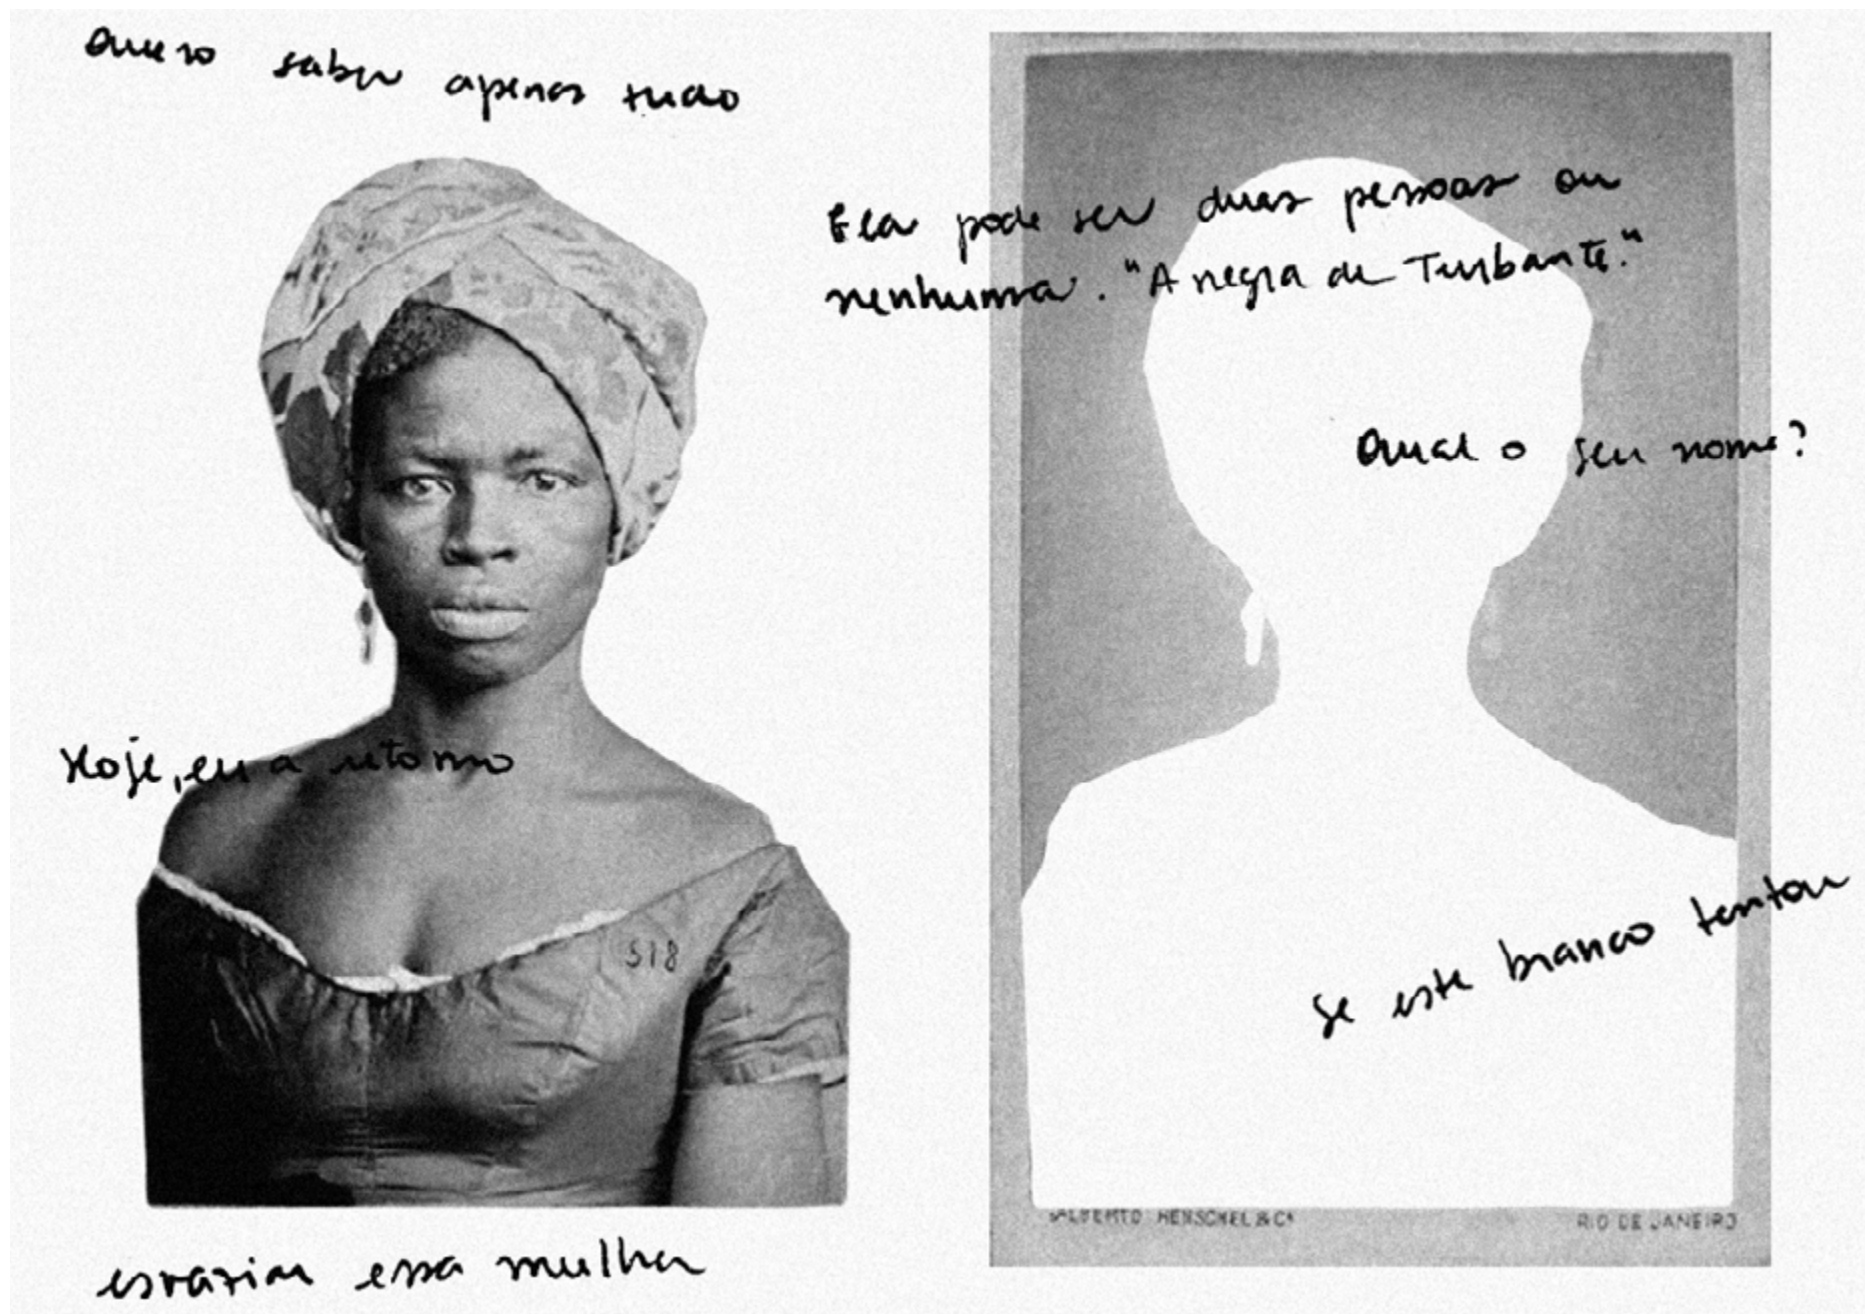 Quero saber apenas tudo
Ela pode ser duas pessoas ou
nenhuma. "A negra de Turbante."
Qual o seu nome?
Hoje, eu a retorno
518
Se este branco tentou
esvaziar essa mulher
ALBERTO HENSCHEL & Cª
RIO DE JANEIRO